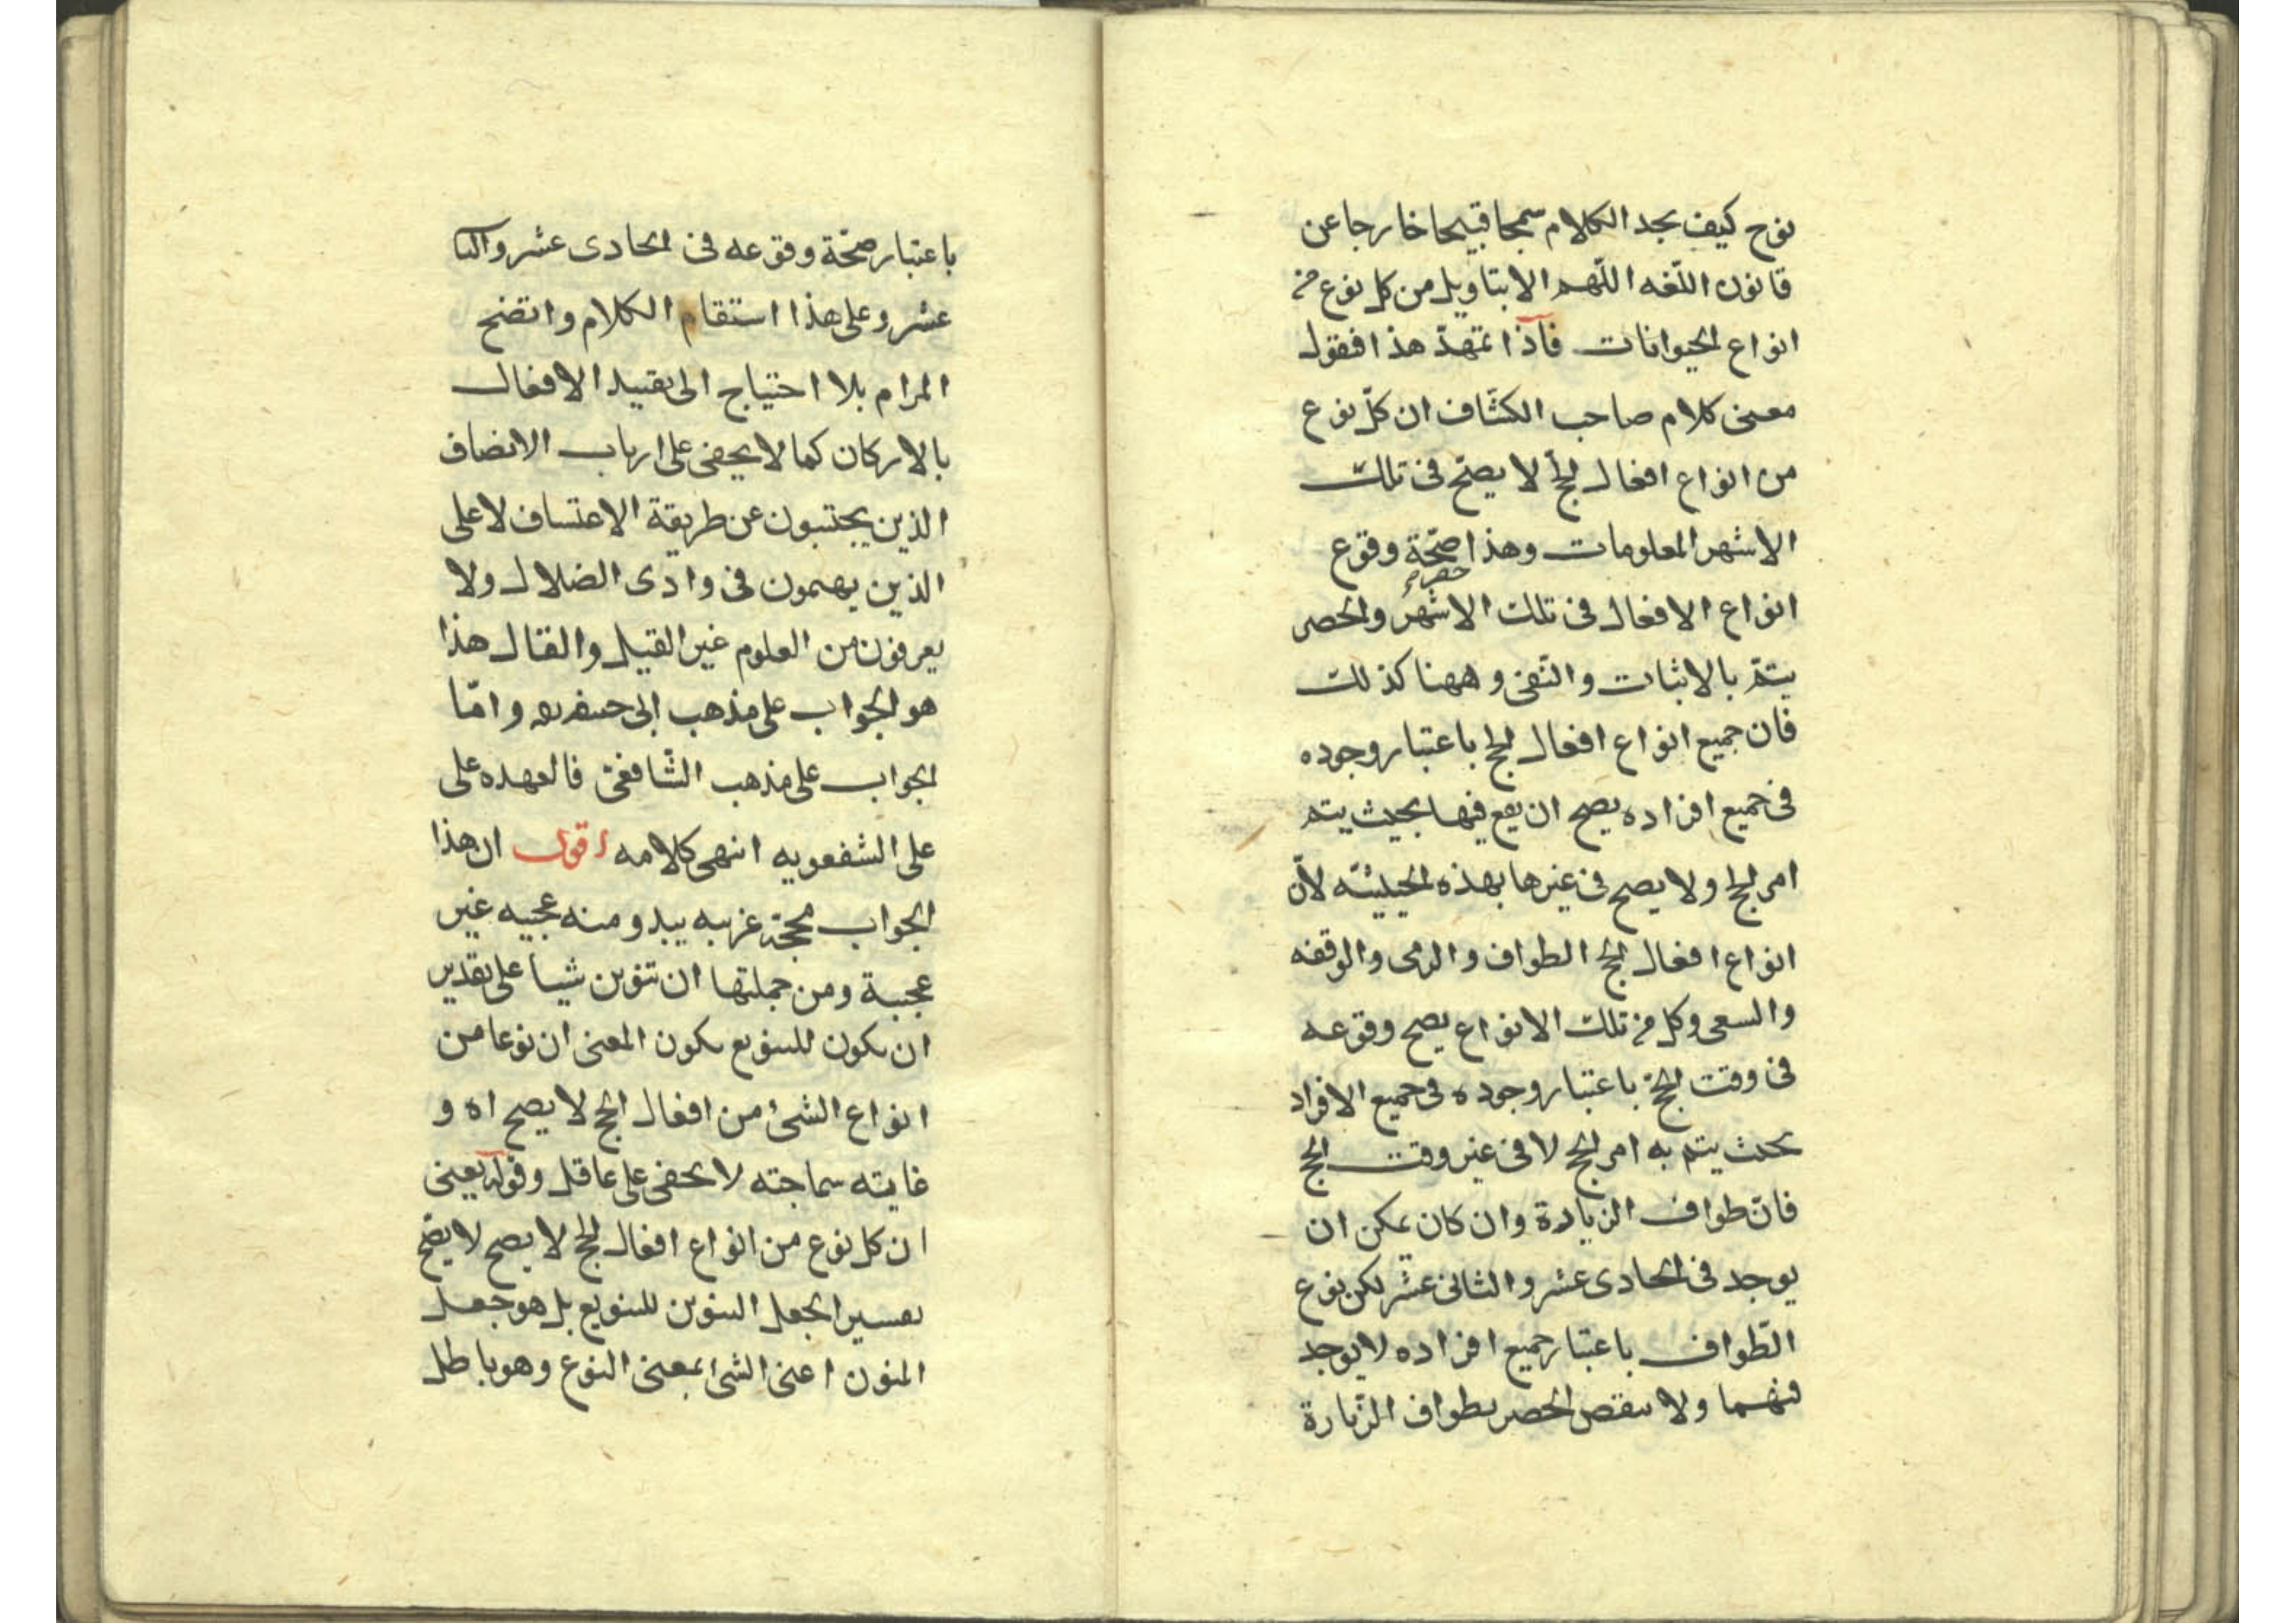 نوح كيف يجد الكلام سمجا قبيحا خارجا عن
قانون اللّغه اللّهم الا بتاويل من كل نوع من
انواع الحيوانات فاذا تمهدّ هذا فنقول
معنى كلام صاحب الكشّاف ان كلّ نوع
من انواع افعال الحج لا يصحّ فى تلك
الاشهر المعلومات وهذا حصر صحّة وقوع
انواع الافعال فى تلك الاشهر والحصر
يتمّ بالاثبات والنّفى وههنا كذلك
فان جميع انواع افعال الحج باعتبار وجوده
فى جميع افراده يصح ان يقع فيها بحيث يتم
امر الحج ولا يصح فى غيرها بهذه الحيثيّه لانّ
انواع افعال الحج الطواف والرمى والوقفه
والسعى وكل من تلك الانواع يصح وقوعه
فى وقت الحجّ باعتبار وجوده فى جميع الافراد
بحيث يتم به امر الحج لا فى غير وقت الحج
فانّ طواف الزيادة وان كان يمكن ان
يوجد فى الحادى عشر والثانى عشر لكن نوع
الطّواف باعتبار جميع افراده لا يوجد
فيهما ولا ينقض الحصر بطواف الزّيارة
باعتبار صحّة وقوعه فى الحادى عشر والثا
عشر وعلى هذا استقام الكلام واتضح
المرام بلا احتياج الى تقييد الافعال
بالاركان كما لا يخفى على ارباب الانصاف
الذين يجتنبون عن طريقة الاعتساف لا على
الذين يهيمون فى وادى الضلال ولا
يعرفون من العلوم غير القيل والقال هذا
هو الجواب على مذهب ابى حنيفه وامّا
الجواب على مذهب الشّافعىّ فالعهده على
على الشفعويه انتهى كلامه اقول ان هذا
الجواب غريبه يبدو منه عجيبه غير
عجيبة ومن جملتها ان تنوين شيا على تقدير
ان يكون للتنويع يكون المعنى ان نوعا من
انواع الشئ من افعال الحج لا يصح اه و
غايته سماجته لا يخفى على عاقل وقوله يعنى
ان كل نوع من انواع افعال الحج لا يصح لا يصحّ
تفسيرا لجعل التنوين للتنويع بل هو جعل
المنون اعنى الشئ بمعنى النوع وهو باطل